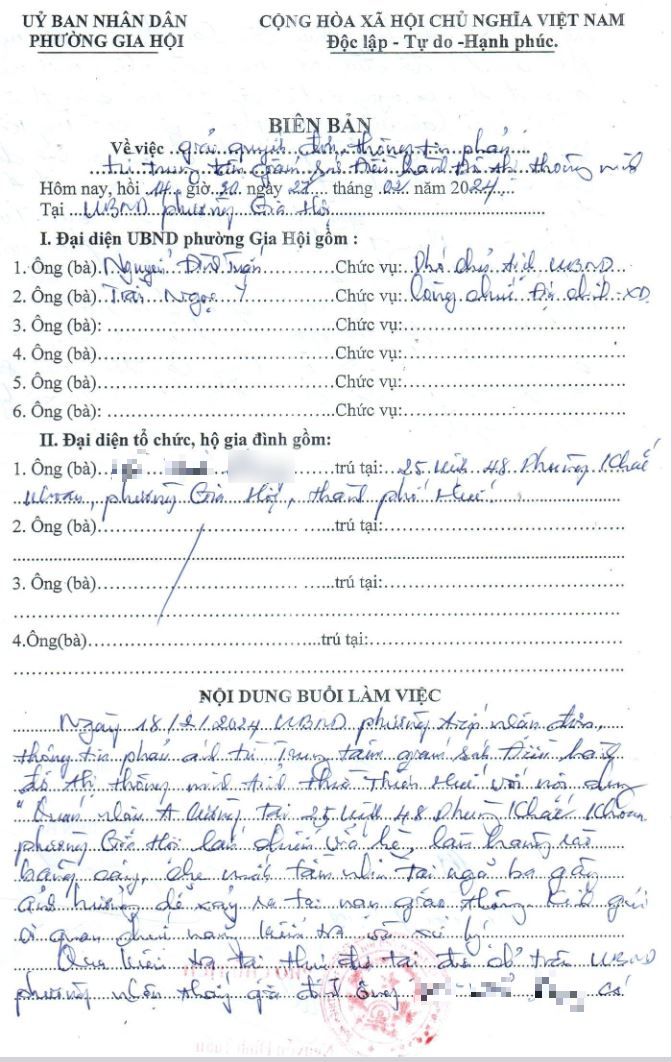 UỶ BAN NHÂN DÂN
PHƯỜNG GIA HỘI
CỘNG HÒA XÃ HỘI CHỦ NGHĨA VIỆT NAM
Độc lập - Tự do -Hạnh phúc.
BIÊN BẢN
Về việc giải quyết đơn thông tin phản
từ trung tâm giám sát điều hành đô thị thông minh
Hôm nay, hồi 14 giờ 30 ngày 27 tháng 02 năm 2024
Tại UBND phường Gia Hội
I. Đại diện UBND phường Gia Hội gồm :
1. Ông (bà) Nguyễn Đình Tuấn Chức vụ: Phó chủ tịch UBND
2. Ông (bà) Trần Ngọc Ý Chức vụ: Công chức Địa chính-XD
3. Ông (bà): Chức vụ:
4. Ông (bà) Chức vụ:
5. Ông (bà) Chức vụ:
6. Ông (bà): Chức vụ:
II. Đại diện tổ chức, hộ gia đình gồm:
1. Ông (bà) trú tại: 25 kiệt 48 Phùng Khắc
Khoan, phường Gia Hội, thành phố Huế.
2. Ông (bà) trú tại:
3. Ông (bà) trú tại:
4.Ông(bà) trú tại:
NỘI DUNG BUỔI LÀM VIỆC
Ngày 18/2/2024 UBND phường tiếp nhận đơn,
thông tin phản ánh từ Trung tâm giám sát Điều hành
đô thị thông minh tỉnh Thừa Thiên Huế với nội dung
"Quán nhậu A Cường tại 25 kiệt 48 Phùng Khắc Khoan
phường Gia Hội lấn chiếm vỉa hè, làm hàng rào
bằng cây, che mất tầm nhìn tại ngã ba gây
ảnh hưởng dễ xảy ra tai nạn giao thông. Kính gửi
cơ quan chức năng kiểm tra và xử lý.
Qua kiểm tra tại thực địa tại địa chỉ trên UBND
phường nhận thấy gia đình ông có